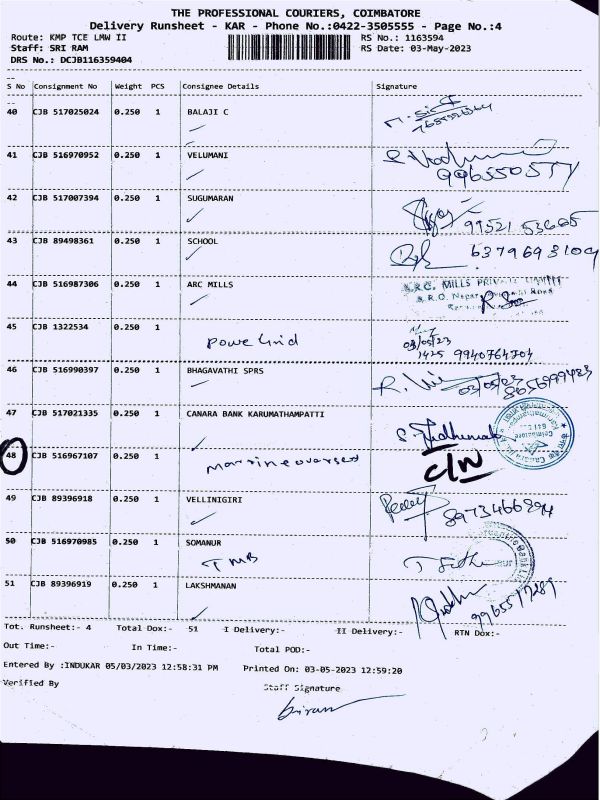 THE PROFESSIONAL COURIERS, COIMBATORE
Delivery Runsheet - KAR - Phone No.:0422-3505555 - Page No.:4
Route: KMP TCE LMW II RS No.: 1163594
Staff: SRI RAM RS Date: 03-May-2023
DRS No.: DCJB116359404
S No Consignment No Weight PCS Consignee Details Signature
40 CJB 517025024 0.250 1 BALAJI C
41 CJB 516970952 0.250 1 VELUMANI
9965505577
42 CJB 517007394 0.250 1 SUGUMARAN
99521 53665
43 CJB 89498361 0.250 1 SCHOOL
6379693109
44 CJB 516987306 0.250 1 ARC MILLS
A.R.C. MILLS PRIVATE LIMITED
45 CJB 1322534 0.250 1
Powe Grid
03/05/23
1425 9940764704
46 CJB 516990397 0.250 1 BHAGAVATHI SPRS
03/05/23
47 CJB 517021335 0.250 1 CANARA BANK KARUMATHAMPATTI
48 CJB 516967107 0.250 1
C/N
49 CJB 89396918 0.250 1 VELLINIGIRI
8973466894
50 CJB 516970985 0.250 1 SOMANUR
TMB
51 CJB 89396919 0.250 1 LAKSHMANAN
Tot. Runsheet:- 4 Total Dox:- 51 I Delivery:- II Delivery:- RTN Dox:-
Out Time:- In Time:- Total POD:-
Entered By :INDUKAR 05/03/2023 12:58:31 PM Printed On: 03-05-2023 12:59:20
Verified By Staff Signature